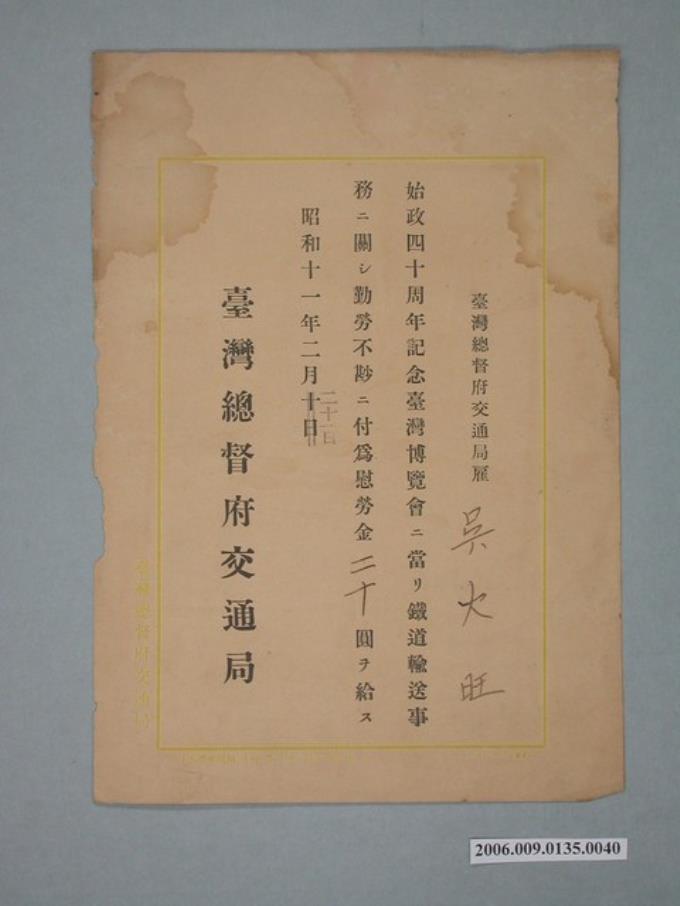 臺灣總督府交通局雇 吳火旺
始政四十周年記念臺灣博覽會ニ當リ鐵道輸送事
務ニ關シ勤勞不尠ニ付爲慰勞金二十圓ヲ給ス
昭和十一年二月十日
二十一日
臺灣總督府交通局
臺灣總督府交通局
2006.009.0135.0040